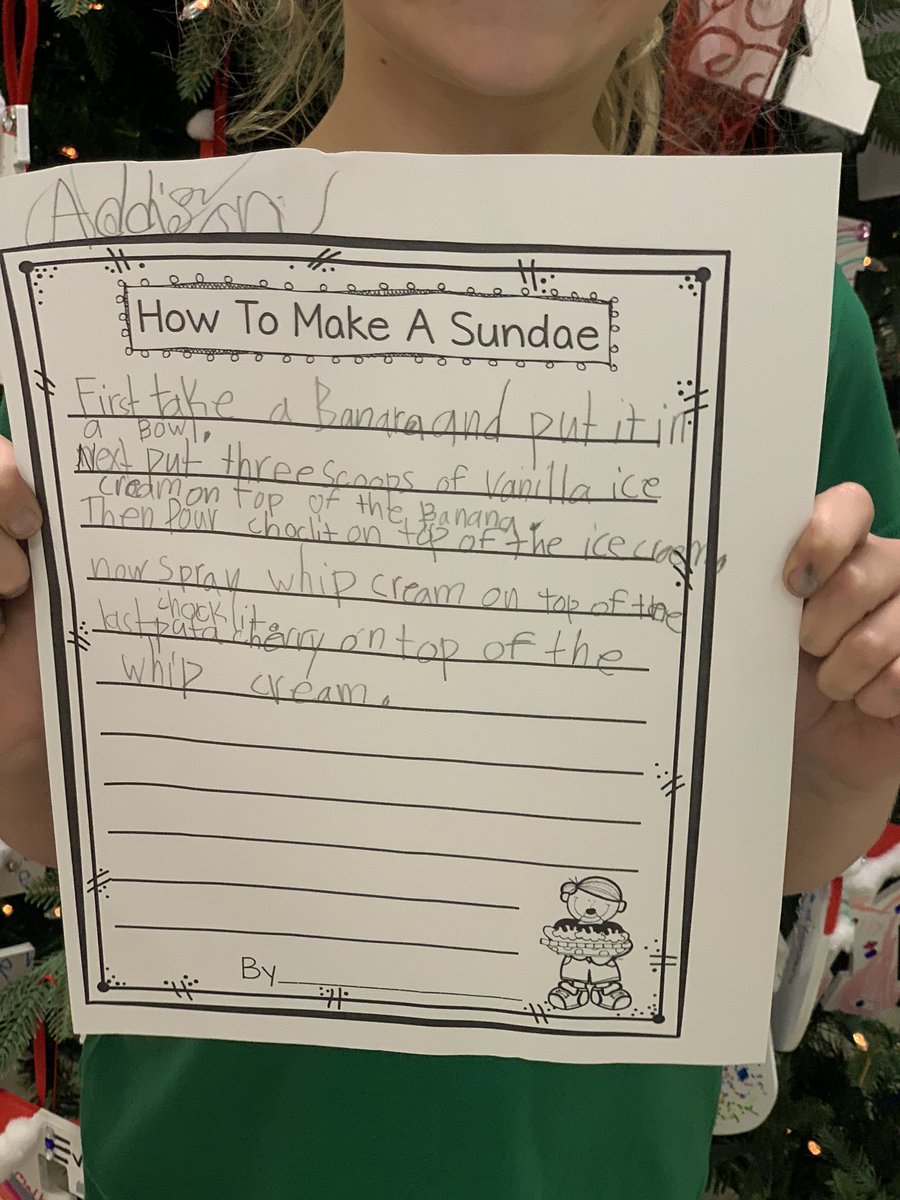 Addison
How To Make A Sundae
First take a Banana and put it in
a Bowl.
Next put three scoops of Vanilla ice
cream on top of the Banana.
Then Pour choclit on top of the ice cream.
now spray whip cream on top of the
chocklit.
last put a cherry on top of the
whip cream.
By